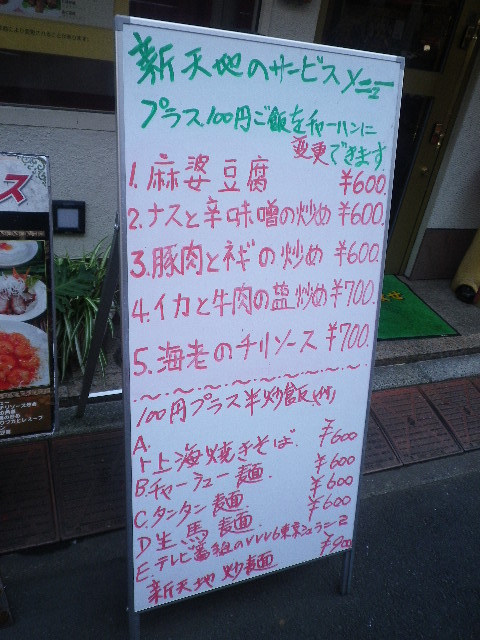 新天地のサービスメニュー
プラス100円ご飯をチャーハンに
変更できます
1.麻婆豆腐 ¥600.
2.ナスと辛味噌の炒め ¥600.
3.豚肉とネギの炒め ¥600.
4.イカと牛肉の塩炒め ¥700.
5.海老のチリソース ¥700.
100円プラス半炒飯
A.
上海焼きそば. ¥600
B.チャーシュー麺. ¥600
C.タンタン麺 ¥600
D生馬麺. ¥600
E.テレビ番組のVVV6東京
新天地 炒麺 ¥900
ス